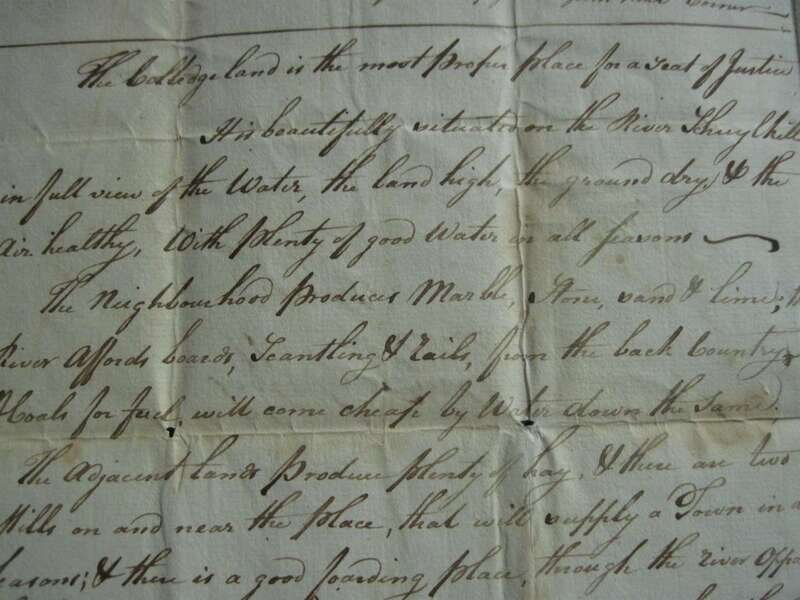 Corner
The Colledge land is the most proper place for a seat of Justice
It is beautifully situated on the River Schuylkill
in full view of the Water, the land high, the ground dry, & the
Air healthy, With plenty of good Water in all seasons
The Neighbourhood produces Marble, Stone, sand & lime; t
River Affords boards, Scantling & rails, from the back Country,
& Coals for fuel, will come cheap by Water down the same.
The Adjacent lands produce plenty of hay, & there are two
Mills on and near the place, that will supply a Town in a
seasons; & there is a good foarding place, through the river Oppo